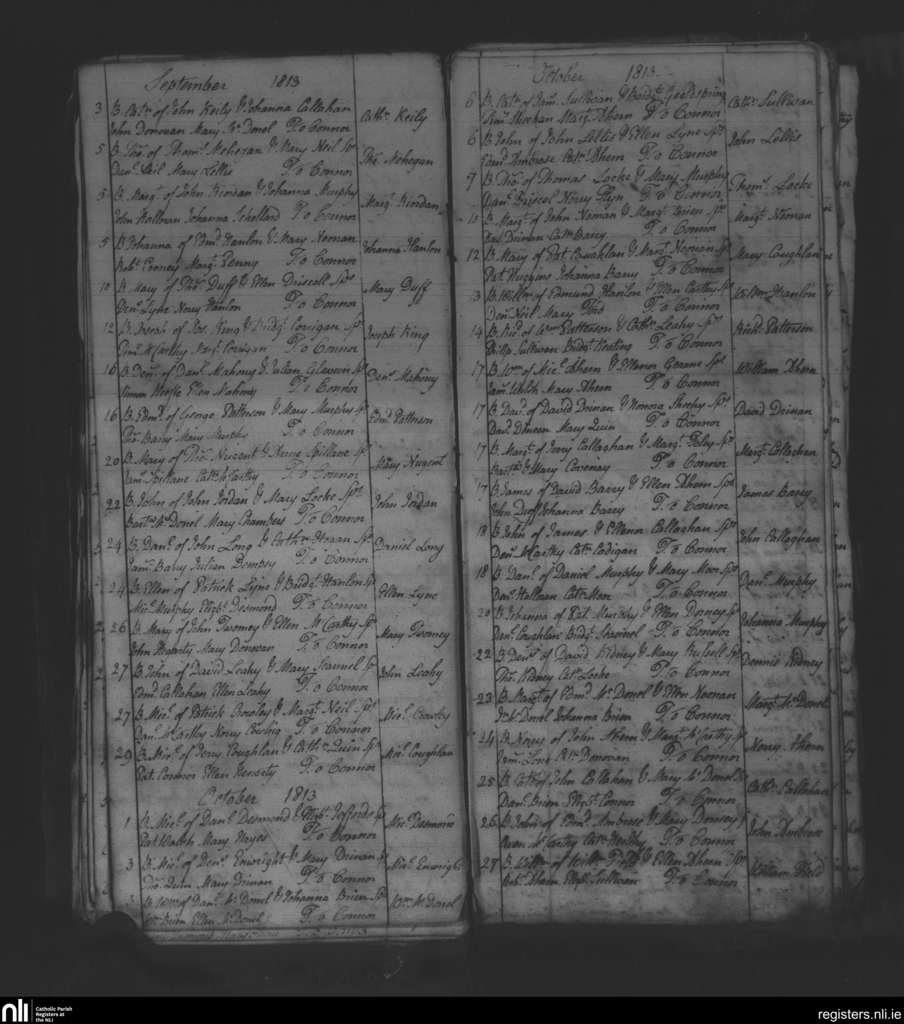 September 1813
3 B. Cath. of John Keily & Johanna Callahan
John Donovan Mary McDonel T. o Connor
Cath. Keily
5 B. Tho. of Thoms. Mehegan & Mary Neil Sp
Danl. Neil Mary Lillis T. o Connor
Tho. Mehegan
5 B. Margt. of John Riordan & Johanna Murphy
John Hallman Johanna Schollard T. o Connor
Margt. Riordan
5 B. Johanna of Edmd. Hanlon & Mary Noonan
Robt. Mary Penny T. o Connor
Johanna Hanlon
10 B. Mary of Thos. Duff & Ellen Driscoll Sps
Denis Lyne Nory Hanlon T. o Connor
Mary Duff
12 B. Joseph of Jos. King & Bridgt. Corrigan Sp
McCarthy Margt. Corrigan T. o Connor
Joseph King
16 B. Denis of Danl. Mahony & Julian Sps
Simon Ellen Mahony T. o Connor
Denis Mahony
16 B. Edmd. of George Patterson & Mary Murphy Sp
Tho. Barry Mary Murphy T. o Connor
Edmd. Patterson
20 B. Mary of Thos. Nugent & Spillane Sps
Jams. Spillane Cath. McCarthy T. o Connor
Mary Nugent
22 B. John of John Jordan & Mary Locke Sps
Bartw. McDonel Mary Chambers T. o Connor
John Jordan
24 B. Danl. of John Long & Cathn. Sps
Jams. Barry Julian Dempsy T. o Connor
Daniel Long
24 B. Ellen of Patrick Lyne & Bridgt. Hanlon Sp
Michl. Murphy Elizth. Desmond T. o Connor
Ellen Lyne
26 B. Mary of John Twomey & Ellen McCarthy Sps
John Hogarty Mary Donovan T. o Connor
Mary Twomey
27 B. John of David Leahy & Mary Scannel Sp
Edmd. Callahan Ellen Leahy T. o Connor
John Leahy
27 B. Michl. of Patrick Crowley & Margt. Neil Sps
Danl. McCarthy Nory T. o Connor
Michl. Crowley
29 B. Michl. of Jerry Coughlan & Cathn. Quin Sp
Pat Connor Ellen T. o Connor
Michl. Coughlan
October 1813
1 B. Michl. of Danl. Desmond & Elizth. Sps
Pat Walsh Mary Hayes T. o Connor
Michl. Desmond
3 B. Michl. of Denis Enwright & Mary Drinan Sp
Tho. Quin Mary Drinan T. o Connor
Michl. Enwright
3 B. Wm. of Danl. McDonel & Johanna Brien Sps
Brien Ellen McDonel T. o Connor
Wm. McDonel
October 1813
6 B. Cath. of Jams. Sullivan & Bridgt.
Sheehan Margt. Ahern T. o Connor
Cath. Sullivan
6 B. John of John Lillis & Ellen Lyne Sps
Edmd. Ambrose Cath. Ahern T. o Connor
John Lillis
9 B. Tho. of Thomas Locke & Mary Murphy
Danl. Driscol Nory Flyn T. o Connor
Thoms. Locke
11 B. Margt. of John Noonan & Margt. Brien Sps
Drinan Cath. Barry T. o Connor
Margt. Noonan
12 B. Mary of Pat Coughlan & Margt. Noonan Sps
Pat Huggins Johanna Barry T. o Connor
Mary Coughlan
13 B. Willm. of Edmund Hanlon & Ellen Carthy Sps
Denis Neil Mary T. o Connor
Willm. Hanlon
14 B. Richd. of Wm. Patterson & Cathn. Leahy Sps
Philip Sullivan Bridgt. Keating T. o Connor
Richd. Patterson
17 B. Wm. of Michl. Ahern & Ellenor Sps
Jams. Welsh Mary Ahern T. o Connor
William Ahern
17 B. Davd. of David Drinan & Honora Sheehy Sps
Davd. Duncan Mary Quin T. o Connor
David Drinan
17 B. Margt. of Jerry Callaghan & Margt. Foley Sps
& Mary Coveney T. o Connor
Margt. Callaghan
17 B. James of David Barry & Ellen Ahern Sps
John Duff Johanna Barry T. o Connor
James Barry
18 B. John of James & Ellenor Callaghan Sps
Denis McCarthy Cathn. Cadigan T. o Connor
John Callaghan
18 B. Danl. of Daniel Murphy & Mary Moor Sps
Denis Hallman Cath. Moor T. o Connor
Danl. Murphy
20 B. Johanna of Pat Murphy & Ellen Dorney Sps
Danl. Coughlan Bridgt. Scannel T. o Connor
Johanna Murphy
22 B. Denis of David Kidney & Mary Russell Sps
Tho. Kidney Cath. Locke T. o Connor
Dennis Kidney
23 B. Margt. of Edmd. McDonel & Ellen Noonan
McDonel Johanna Brien T. o Connor
Margt. McDonel
24 B. Nory of John Ahern & Margt. McCarthy Sps
Long Cathn. Donovan T. o Connor
Nory Ahern
25 B. Cath. of John Callahan & Mary McDonel Sp
Danl. Brien Elizth. Connor T. o Connor
Cath. Callahan
26 B. John of Edmd. Ambrose & Mary Dorney Sp
Owen McCarthy Cath. T. o Connor
John Ambrose
27 B. Willm. of Willm. & Ellen Ahern Sps
Robt. Ahern Elizth. Sullivan T. o Connor
nli Catholic Parish
Registers at
the NLI
registers.nli.ie